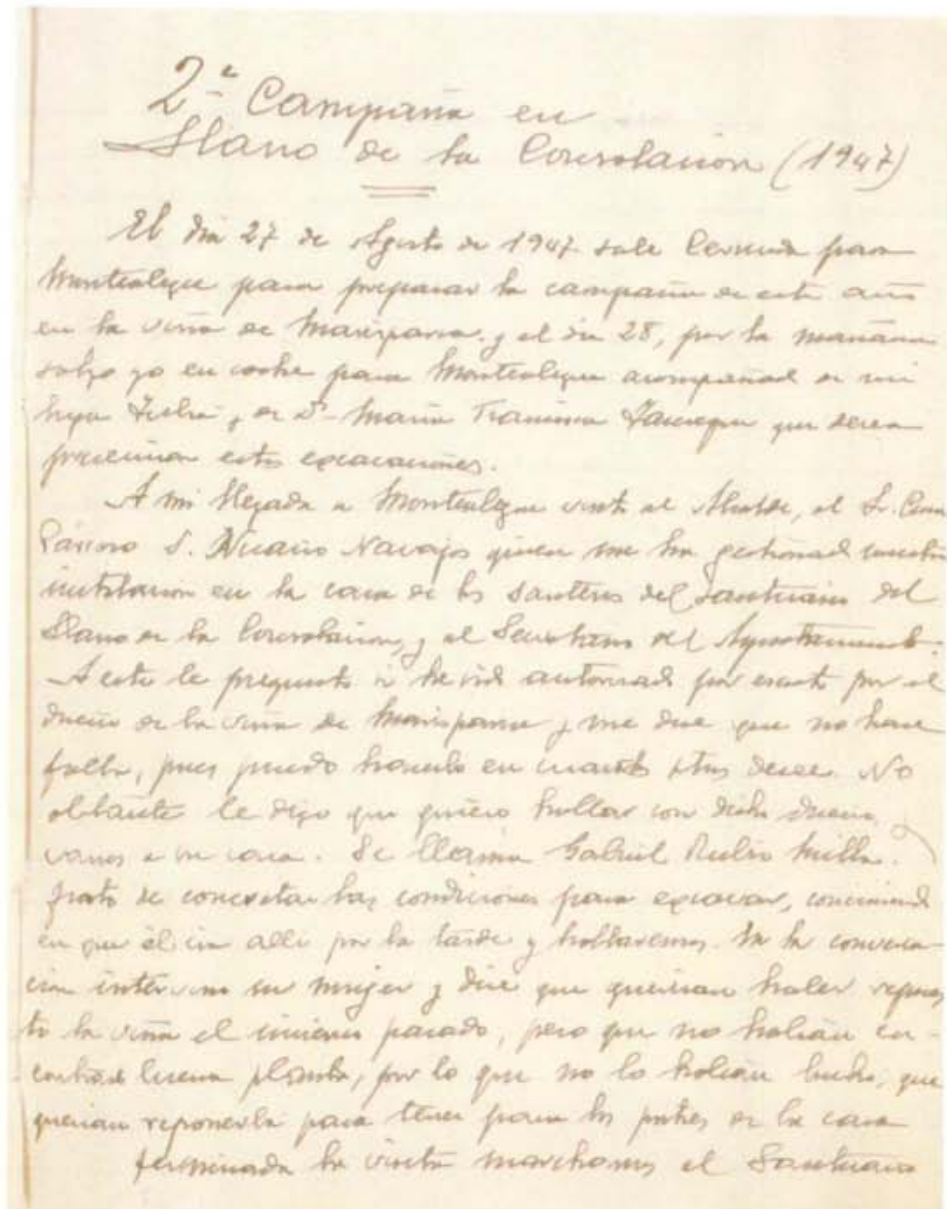 2ª Campaña en
Llano de la Consolación (1947)
El día 27 de Agosto de 1947 sale para
Montealegre para preparar la campaña de este año
en la viña de Marisparza y el día 28, por la mañana
salgo yo en coche para Montealegre acompañado de mi
hija y de Dª María que desean
presenciar estas excavaciones.
A mi llegada a Montealegre visito al Alcalde, al Sr. Cura
Párroco D. Navajas quien me ha gestionado nuestra
instalación en la casa de los santeros del santuario del
Llano de la Consolación, y al Secretario del Ayuntamiento.
A este le pregunto si he sido autorizado por escrito por el
dueño de la viña de Marisparza y me dice que no hace
falta, pues puedo hacerlo en cuanto desee. No
obstante le digo que quiero hablar con dicho dueño,
vamos a su casa. Se llama Gabriel Rubio Milla.
Trato de concretar las condiciones para excavar, conviniendo
en que él irá allí por la tarde y hablaremos. En la conversa-
ción intervino su mujer y dice que querían haber repues-
to la viña el invierno pasado, pero que no habían en-
contrado buena planta, por lo que no lo habían hecho, que
querían reponerla para tener para los de la casa
Terminada la visita marchamos al Santuario